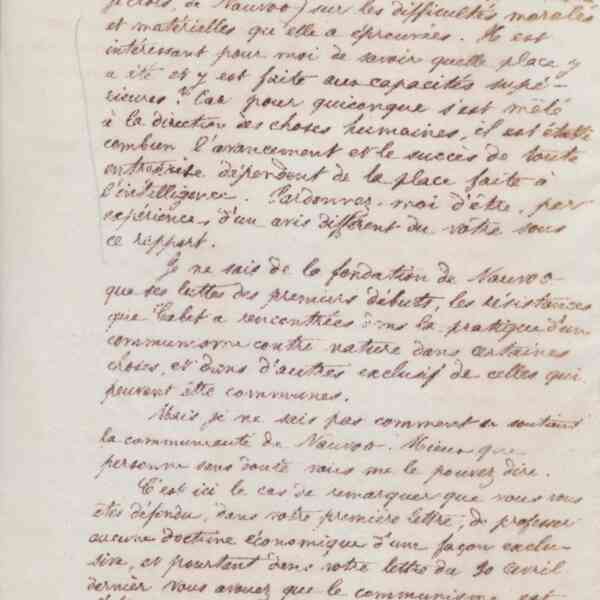 je crois, de Nauvoo) sur les difficultés morales
et matérielles qu'elle a éprouvées. Il est
intéressant pour moi de savoir quelle place y
a été et y est faite aux capacités supé-
rieures? Car pour quiconque s'est mêlé
à la direction des choses humaines, il est établi
combien l'avancement et le succès de toute
entreprise dépendent de la place faite à
l'intelligence. Pardonnez-moi d'être, par
expérience, d'un avis différent du vôtre sous
ce rapport.
Je ne sais de la fondation de Nauvoo
que les luttes des premiers débuts, les résistances
que Cabet a rencontrées dans la pratique d'un
communisme contre nature dans certaines
choses, et dans d'autres exclusif de celles qui
peuvent être communes.
Mais je ne sais pas comment se soutient
la communauté de Nauvoo. Mieux que
personne sans doute vous me le pouvez dire.
C'est ici le cas de remarquer que vous vous
êtes défendu, dans votre première lettre, de professer
aucune doctrine économique d'une façon exclu-
sive, et pourtant dans votre lettre du 30 avril
dernier vous avouez que le communisme est